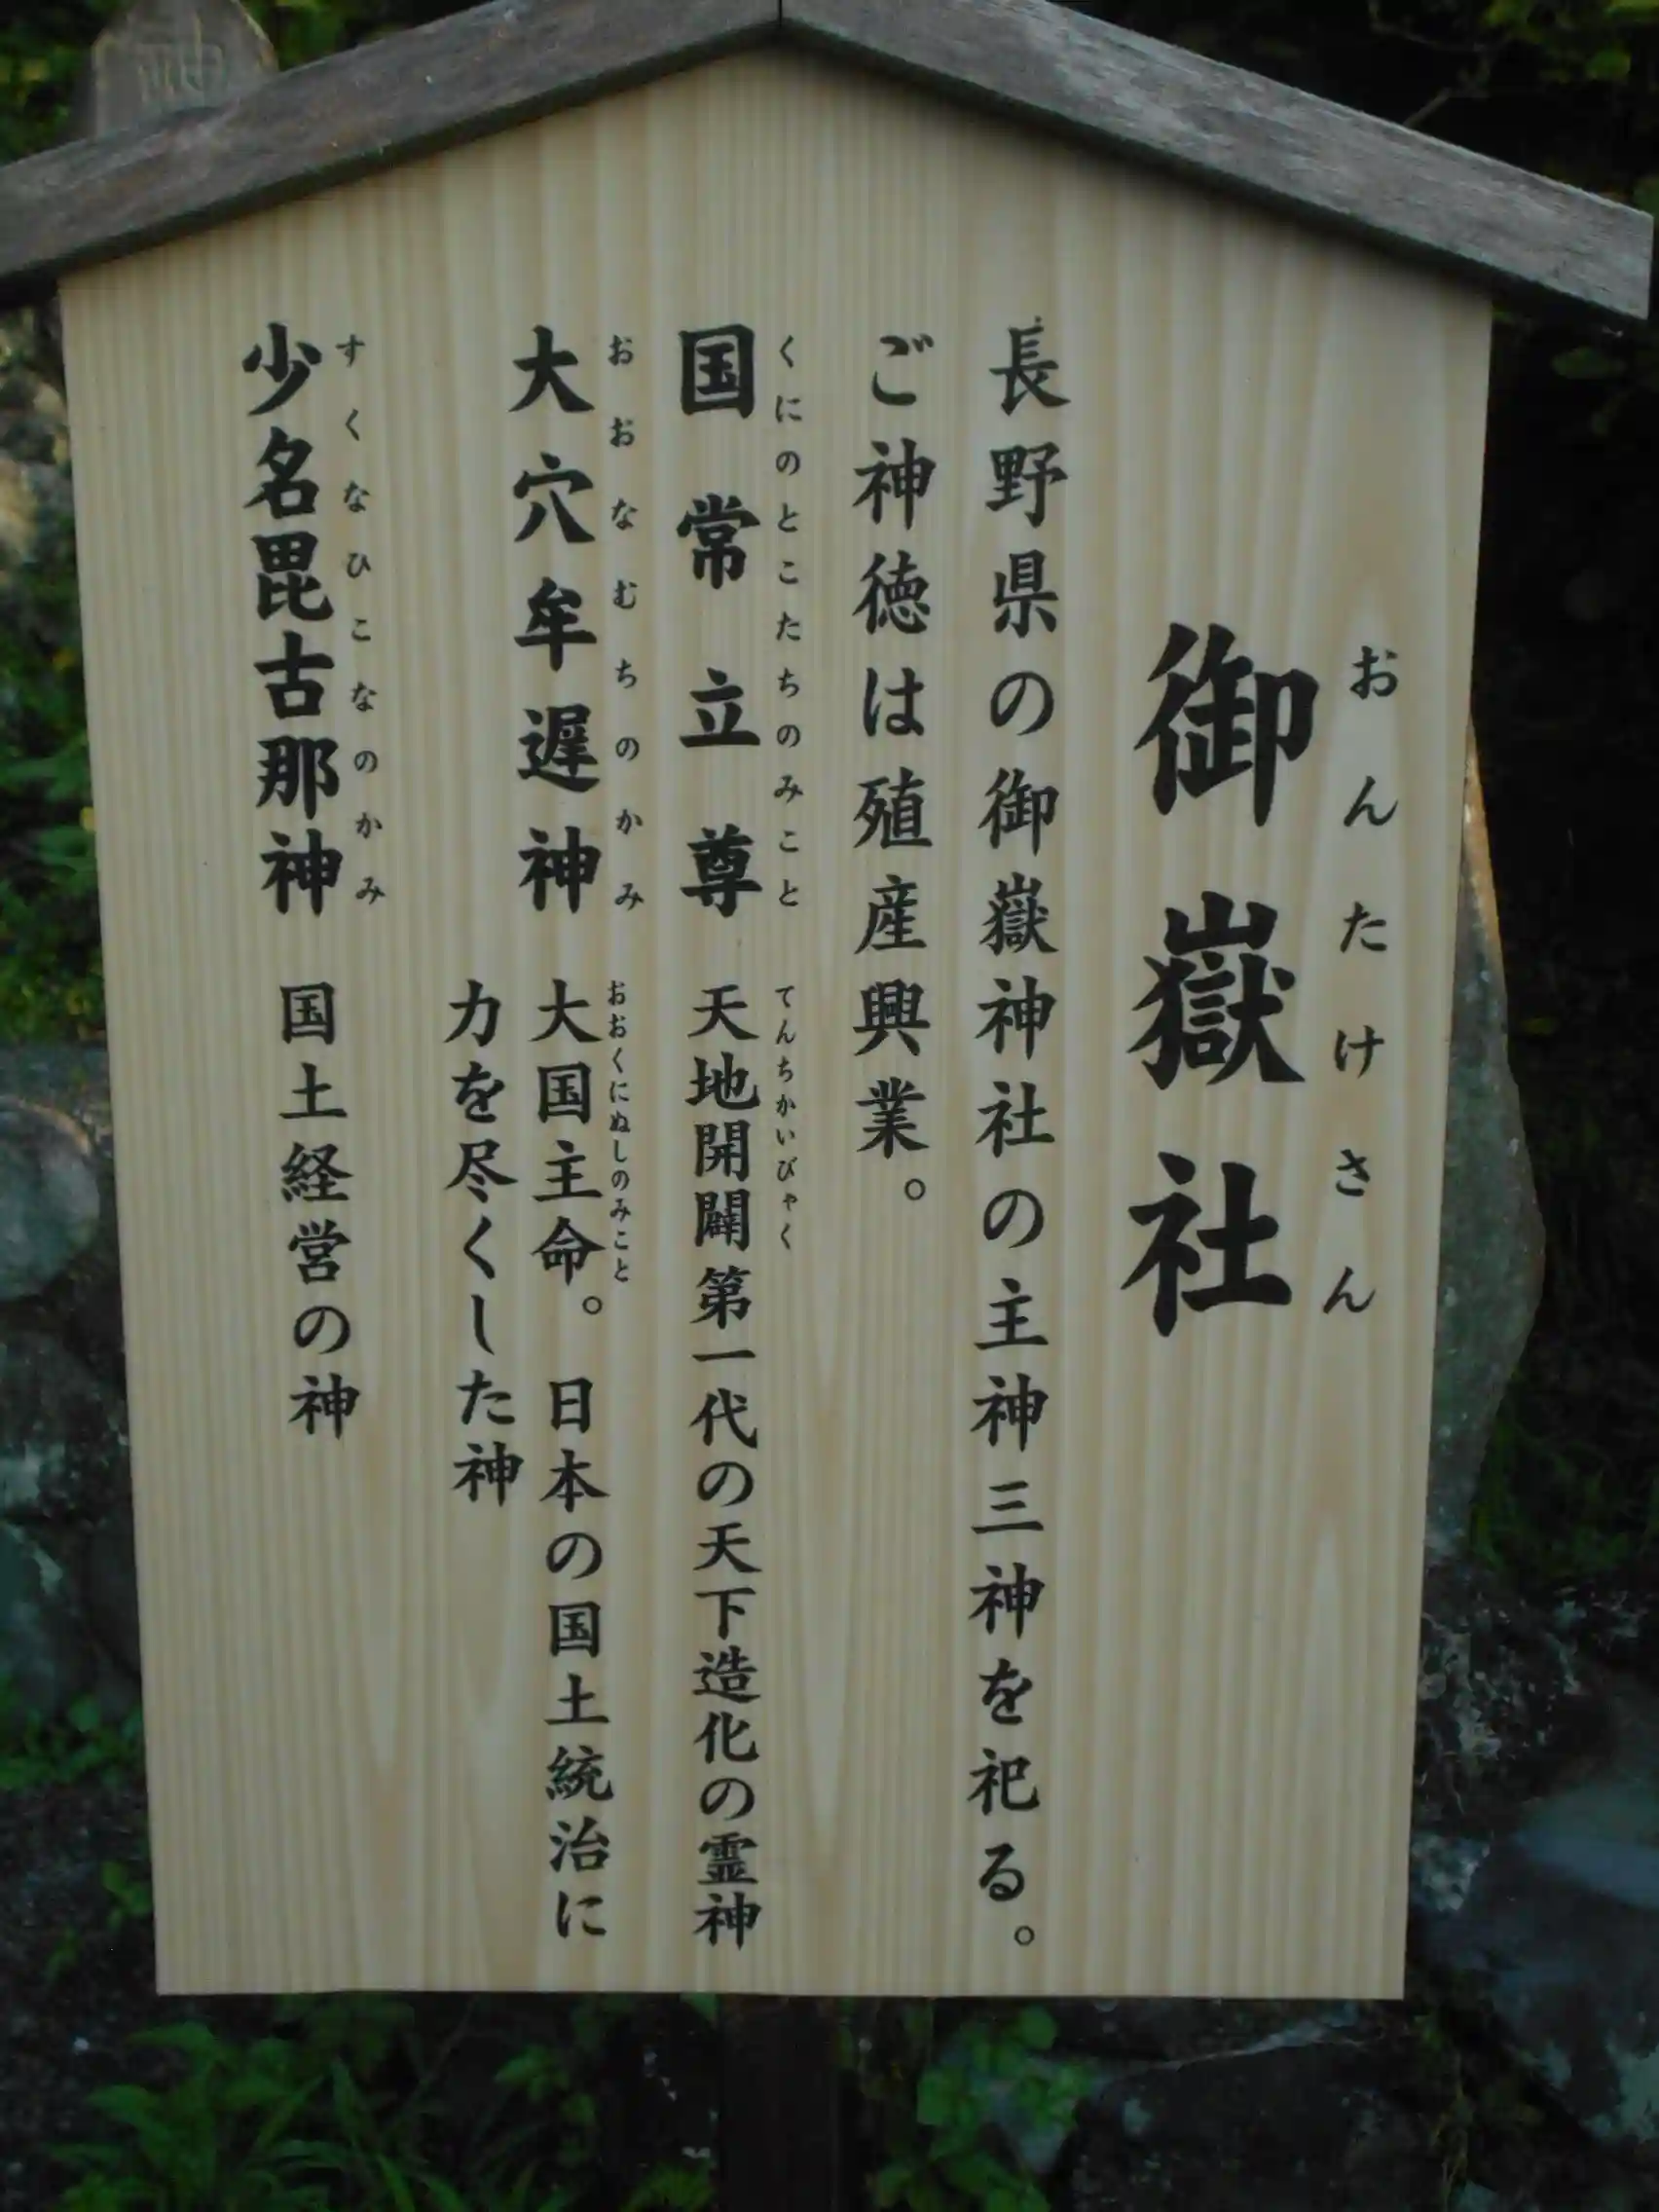 おんたけさん
御嶽社
長野県の御嶽神社の主神三神を祀る。
ご神徳は殖産興業。
くにのとこたちのみこと
国常立尊
てんちかいびゃく
天地開闢第一代の天下造化の霊神
おおなむちのかみ
大穴牟遅神
おおくにぬしのみこと
大国主命。日本の国土統治に
力を尽くした神
すくなひこなのかみ
少名毘古那神
国土経営の神